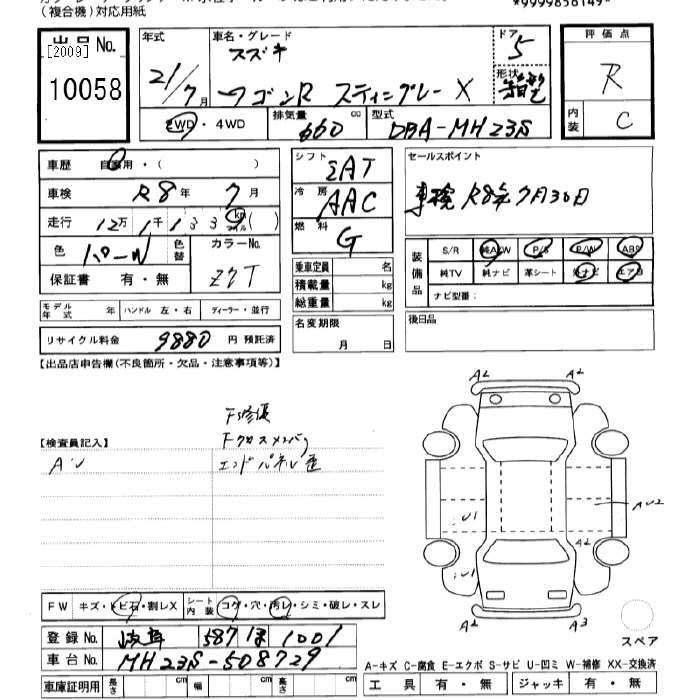 (複合機)対応用紙
出品No.
[2009]
10058
年式
21/7月
車名・グレード
スズキ
ワゴンR スティングレー X
ドア
5
形状
評価点
R
内装
C
2WD・4WD
排気量
660 cc
型式
DBA-MH23S
車歴 自家用・( )
車検 R8年 7月
走行 12万1千133km( )
色 パール
色替
カラーNo.
Z7T
保証書 有・無
モデル年式 年 ハンドル 左・右 ディーラー・並行
リサイクル料金 9880 円 預託済
シフト
IAT
冷房
AAC
燃料
G
乗車定員 名
積載量 kg
総重量 kg
名変期限
月 日
セールスポイント
車検 R8年7月30日
装備品
S/R 純AW P/S P/W ABS
純TV 純ナビ 革シート 社ナビ エアB
ナビ型番:
後日品
【出品店申告欄(不良箇所・欠品・注意事項等)】
【検査員記入】
A・U
F修復
Fクロスメンバ
エンドパネル歪
FW キズ・トビ石・割レX
シート内装 コゲ・穴・汚レ・シミ・破レ・スレ
登録No. 岐阜 587 ほ 1001
車台No. MH23S-508729
車庫証明用 長さ cm 幅 cm 高さ cm
A2 A2
U1
AU2
A2
U1
A2 A3
スペア
A-キズ C-腐食 E-エクボ S-サビ U-凹ミ W-補修 XX-交換済
工具 有・無 ジャッキ 有・無